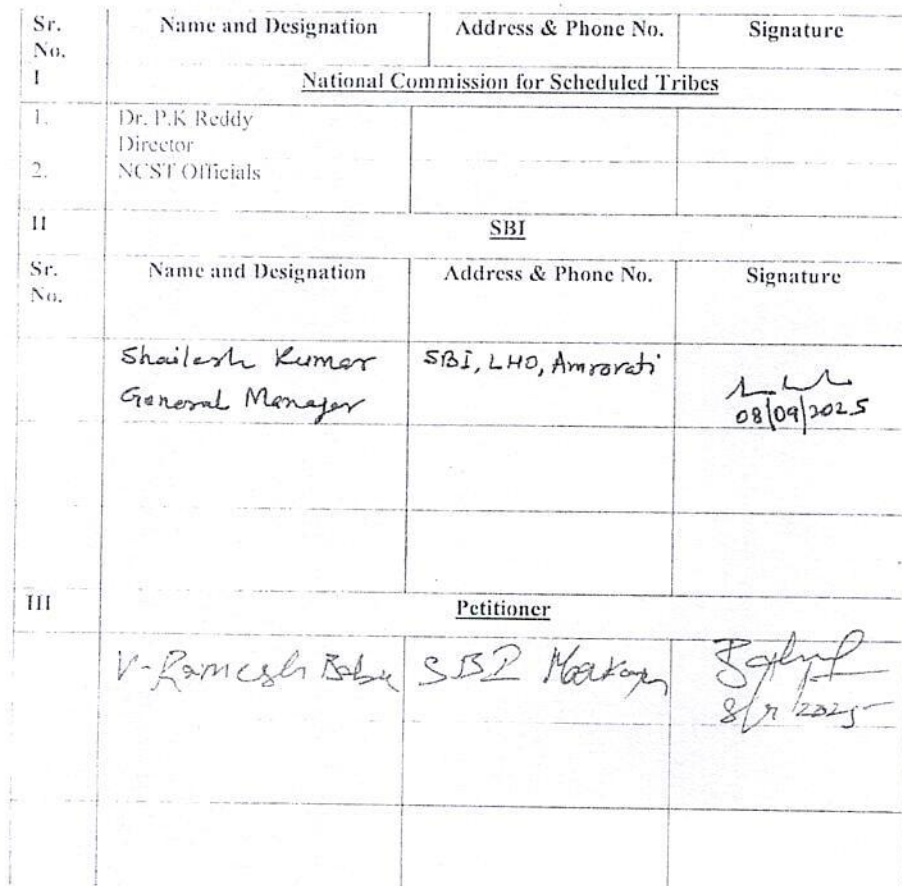 Sr. No. Name and Designation Address & Phone No. Signature
I National Commission for Scheduled Tribes
1. Dr. P.K Reddy
Director
2. NCST Officials
II SBI
Sr. No. Name and Designation Address & Phone No. Signature
Shailesh Kumar SBI, LHO, Amravati
General Manager 08/09/2025
III Petitioner
V-Ramesh Babu SBI